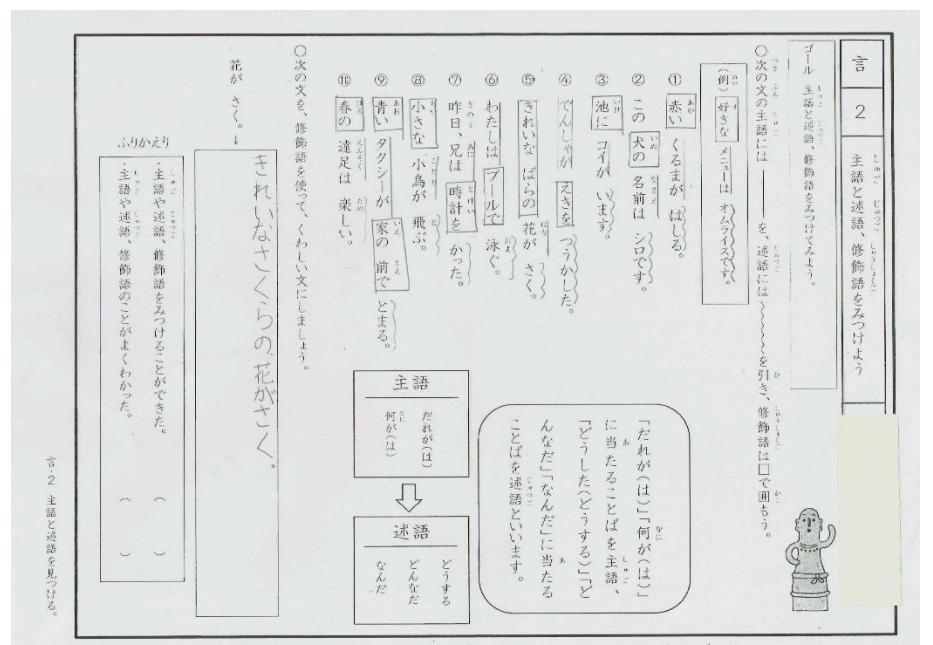 言
2
主語と述語、修飾語をみつけよう
ゴール 主語と述語、修飾語をみつけてみよう。
○次の文の主語には――を、述語には〜〜〜〜を引き、修飾語は□で囲もう。
(例) 好きな メニューは オムライスです。
① 赤い くるまが はしる。
② この 犬の 名前は シロです。
③ 池に コイが います。
④ でんしゃが えきを つうかした。
⑤ きれいな ばらの 花が さく。
⑥ わたしは プールで 泳ぐ。
⑦ 昨日、兄は 時計を かった。
⑧ 小さな 小鳥が 飛ぶ。
⑨ 青い タクシーが 家の 前で とまる。
⑩ 春の 遠足は 楽しい。
「だれが(は)」「何が(は)」
に当たることばを主語、
「どうした(どうする)」「ど
んなだ」「なんだ」に当たる
ことばを述語といいます。
主語
だれが(は)
何が(は)
述語
どうする
どんなだ
なんだ
○次の文を、修飾語を使って、くわしい文にしましょう。
花が さく。→
きれいなさくらの花がさく。
ふりかえり
・主語や述語、修飾語をみつけることができた。 ( )
・主語や述語、修飾語のことがよくわかった。 ( )
言-2 主語と述語を見つける。